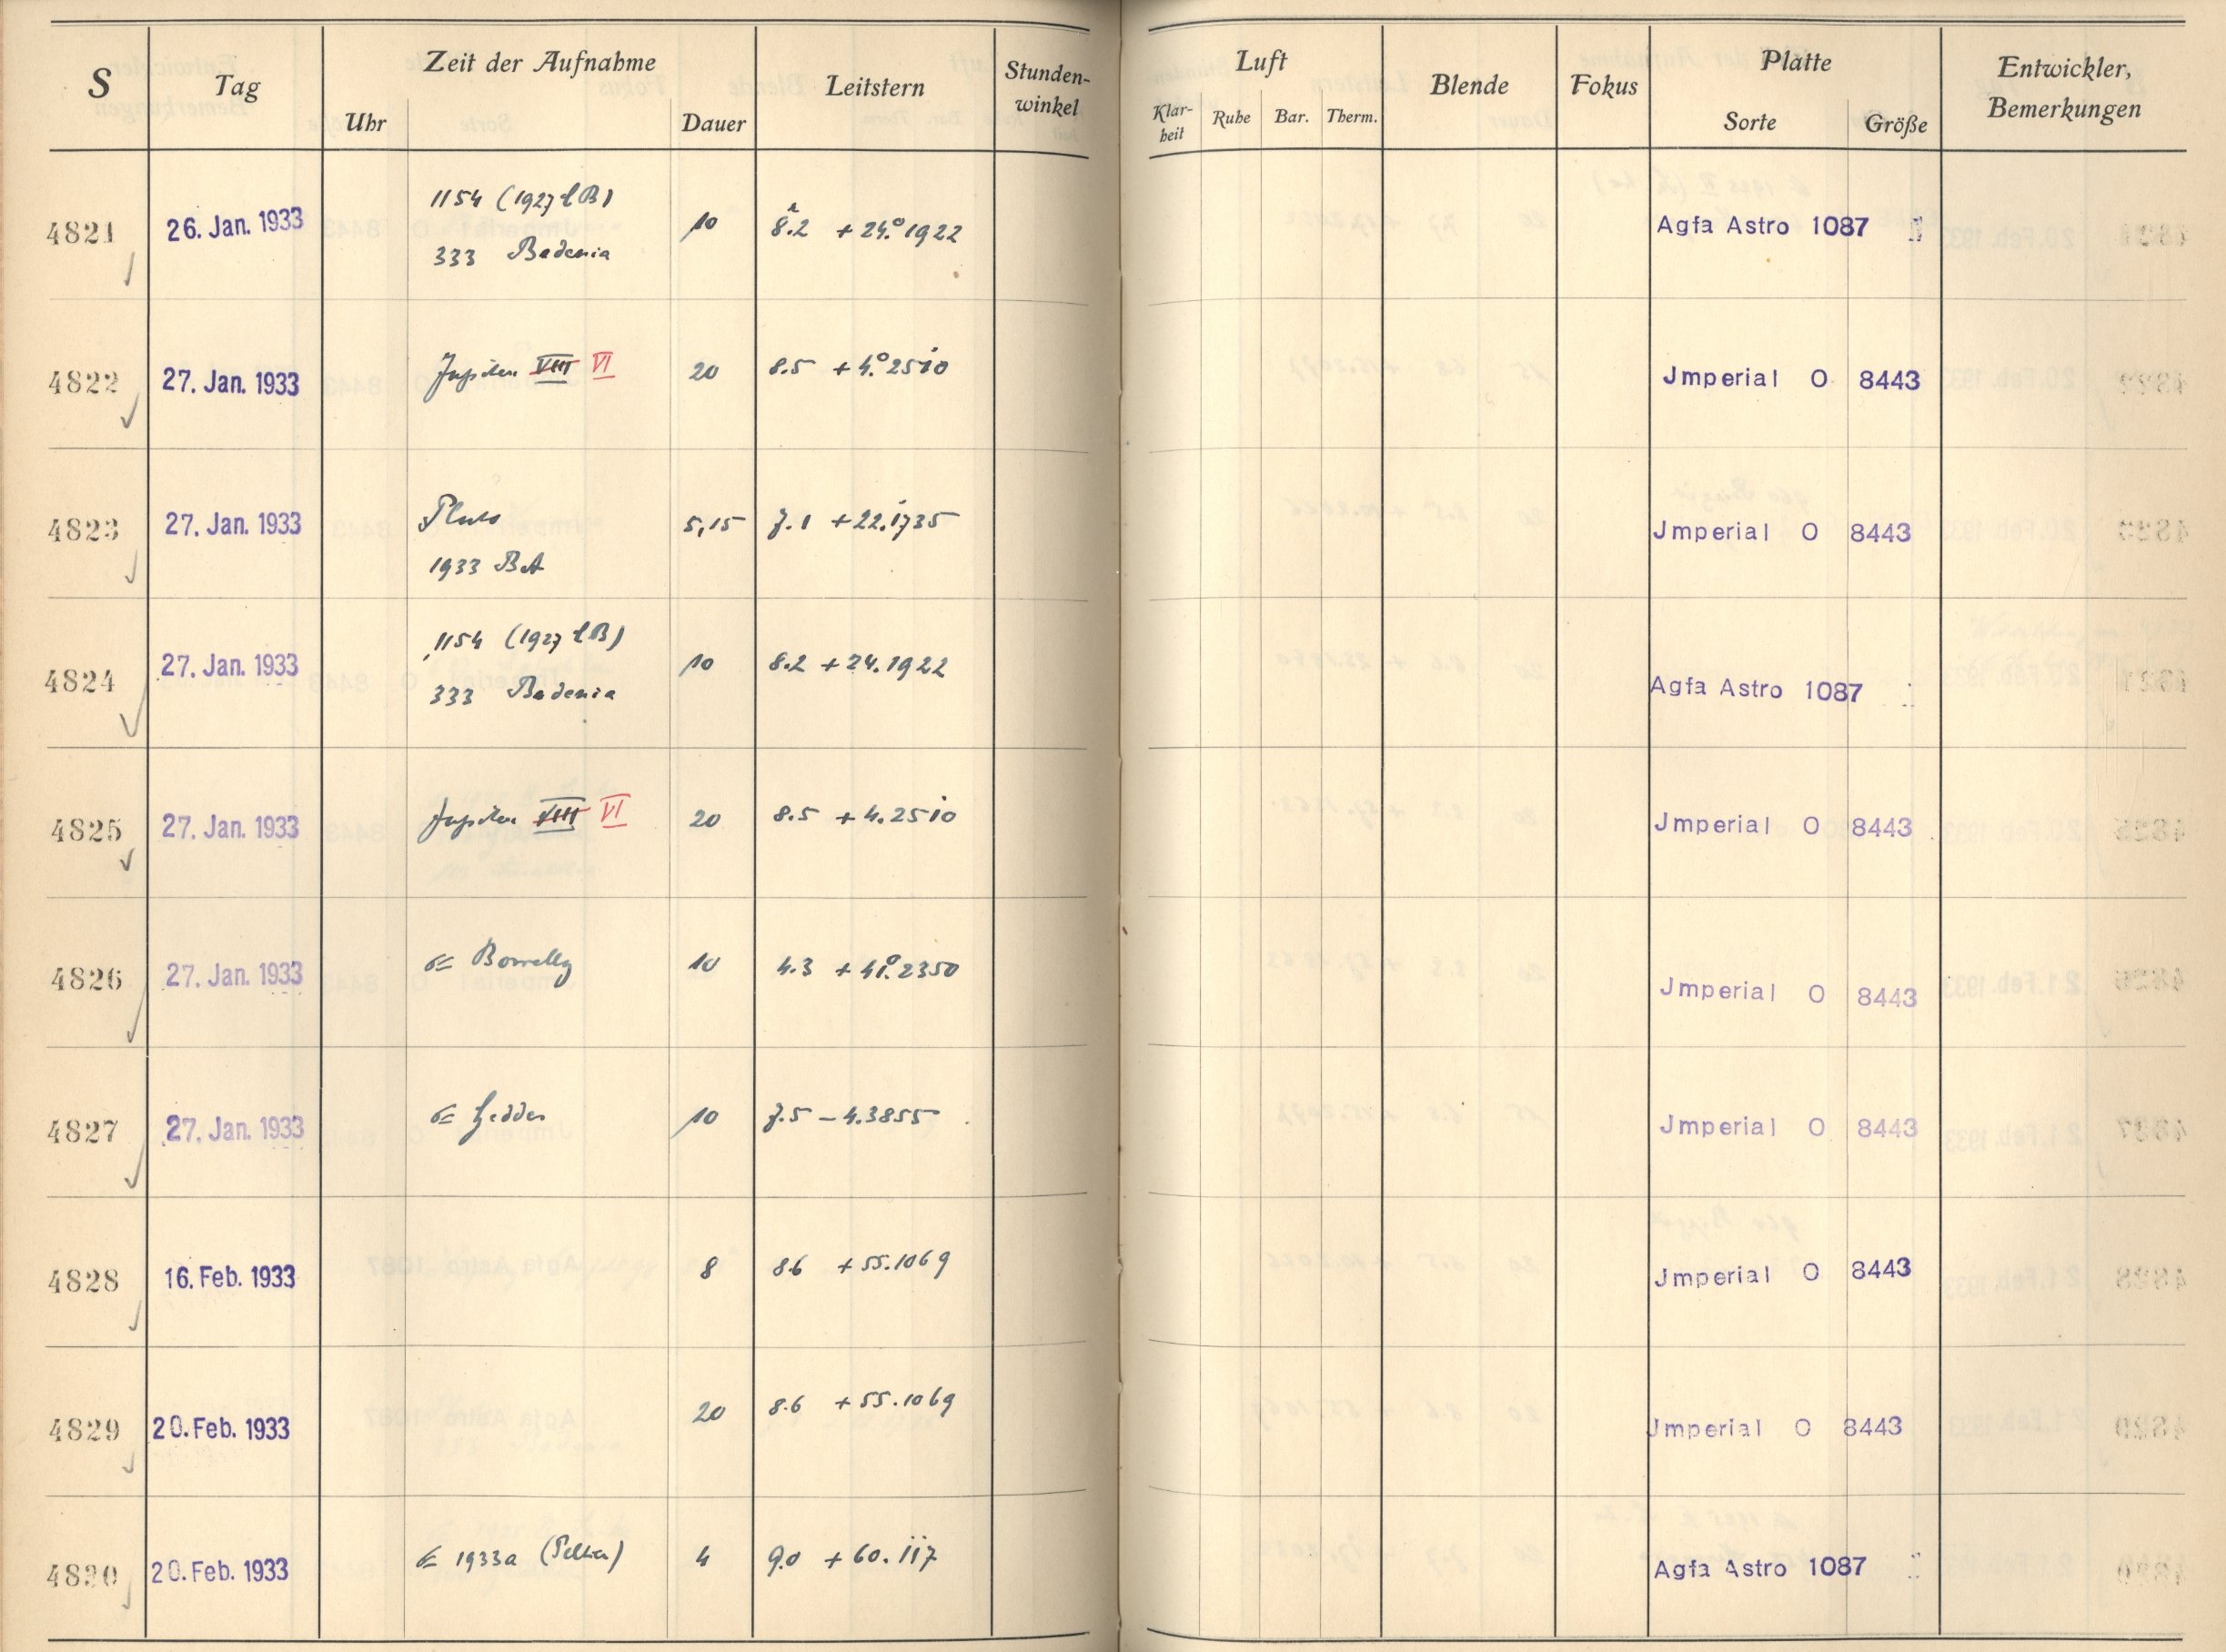 S Tag Zeit der Aufnahme Leitstern Stunden-winkel Luft Blende Fokus Platte Entwickler, Bemerkungen
Uhr Dauer Klar-heit Ruhe Bar. Therm. Sorte Größe
1154 (1927 CB)
4821 26. Jan. 1933 10 8.2 +24.°1922 Agfa Astro 1087
333 Badenia
4822 27. Jan. 1933 Jupiter VIII VI 20 8.5 +4.°2510 Jmperial O 8443
4823 27. Jan. 1933 Pluto 5,15 7.1 +22.1735 Jmperial O 8443
1933 BA
1154 (1927 CB)
4824 27. Jan. 1933 10 8.2 +24.1922 Agfa Astro 1087
333 Badenia
4825 27. Jan. 1933 Jupiter VIII VI 20 8.5 +4.2510 Jmperial O 8443
4826 27. Jan. 1933 Borrelly 10 4.3 +41.°2350 Jmperial O 8443
4827 27. Jan. 1933 Geddes 10 7.5 -4.3855 Jmperial O 8443
4828 16. Feb. 1933 8 8.6 +55.1069 Jmperial O 8443
4829 20. Feb. 1933 20 8.6 +55.1069 Jmperial O 8443
4830 20. Feb. 1933 1933a (Peltier) 4 9.0 +60.117 Agfa Astro 1087